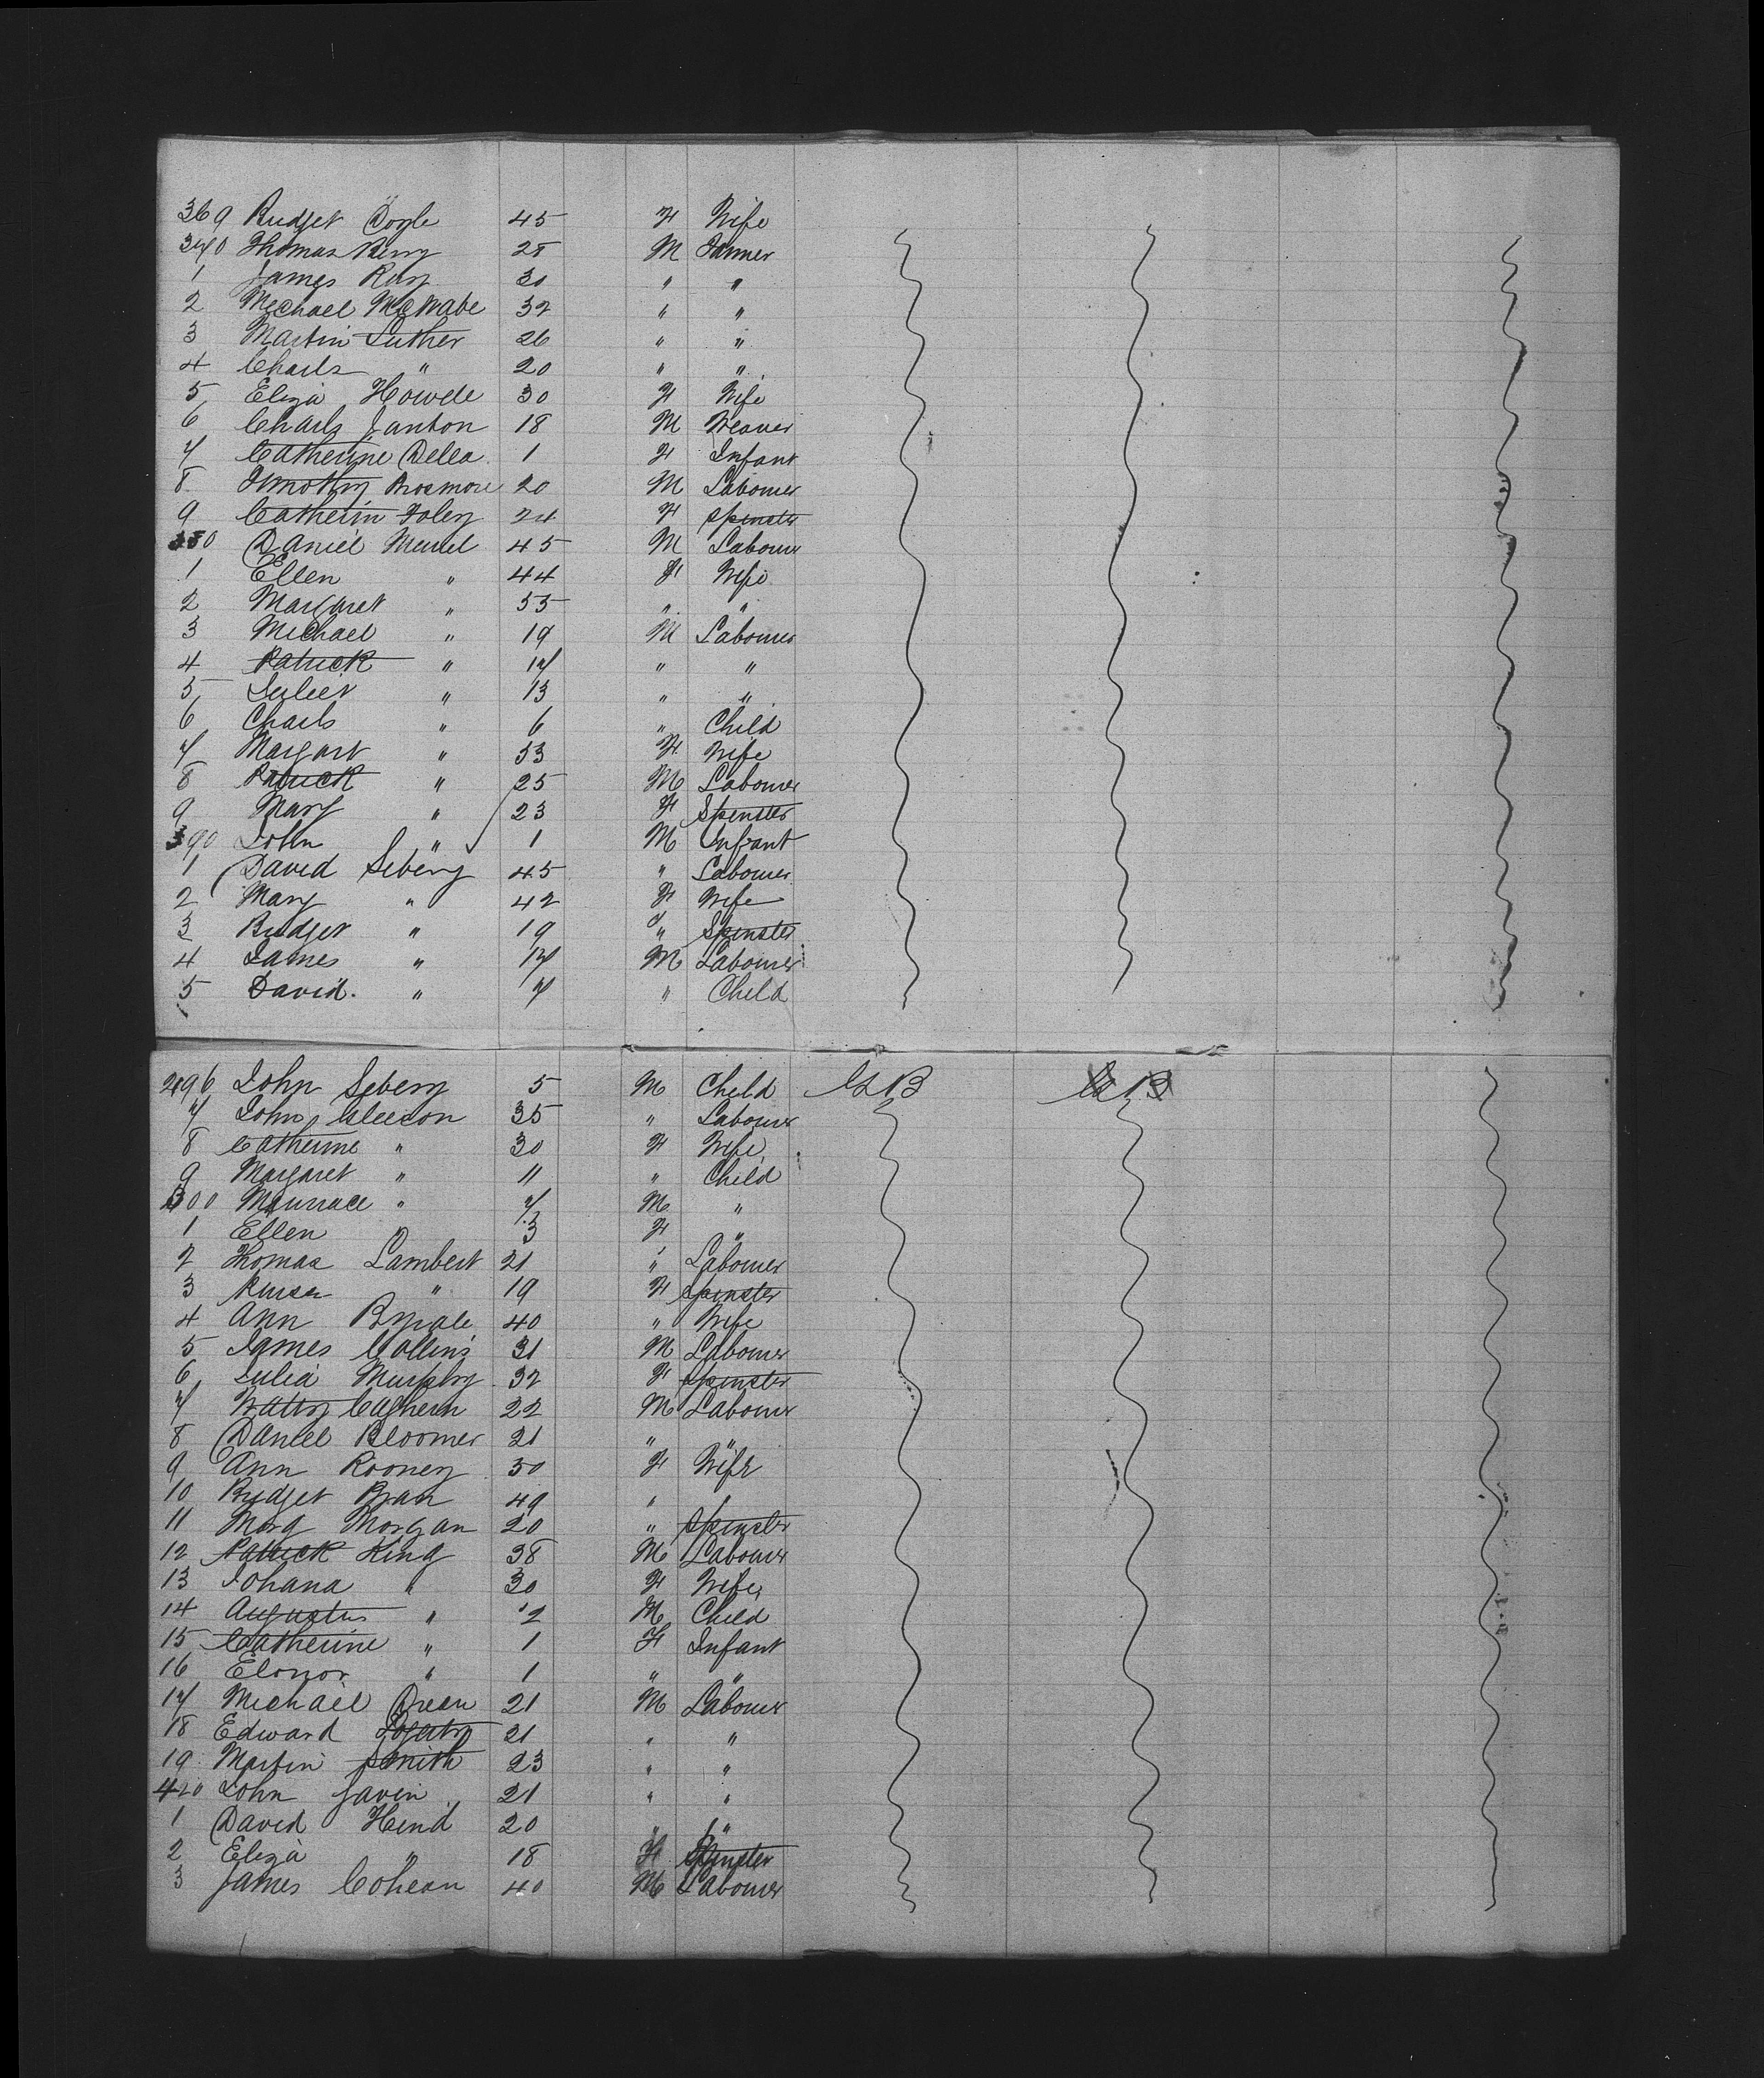 369 Bridget Doyle 45 F Wife
370 Thomas Berry 28 M Farmer
1 James Ray 30 " "
2 Michael McWabe 32 " "
3 Martin Luther 26 " "
4 Charls " 20 " "
5 Eliza Howde 30 F Wife
6 Charls Janton 18 M Weaver
7 Catherine Della 1 F Infant
8 Timothy Brosmore 20 M Labourer
9 Catherin Foley 24 F Spinster
380 Daniel 45 M Labourer
1 Ellen " 44 F Wife
2 Margaret " 55 " "
3 Michael " 19 M Labourer
4 Patrick " 17 " "
5 " 13 " "
6 Charls " 6 " Child
7 Margart " 53 F Wife
8 Patrick " 25 M Labourer
9 Mary " 23 F Spinster
390 John " 1 M Infant
1 David Sebery 45 " Labourer
2 Mary " 42 F Wife
3 Bridget " 19 " Spinster
4 James " 17 M Labourer
5 David " 7 " Child
396 John Sebery 5 M Child G B G B
7 John Gleeson 35 " Labourer
8 Catherine " 30 F Wife
9 Margaret " 11 " Child
400 Maurrace " 7 M "
1 Ellen " 3 F "
2 Thomas Lambert 21 " Labourer
3 " 19 F Spinster
4 Ann 40 " Wife
5 James Collins 31 M Labourer
6 Julia Murphy 32 F Spinster
7 Caghern 22 M Labourer
8 Daniel Bloomer 21 " "
9 Ann Rooney 50 F Wife
10 Bridget Bran 49 " "
11 Marg Morgan 20 " Spinster
12 Patrick King 38 M Labourer
13 Johana " 30 F Wife
14 Augustus " 2 M Child
15 Catherine " 1 F Infant
16 Elonor " 1 " "
17 Michael Breen 21 M Labourer
18 Edward 21 " "
19 Martin Smith 23 " "
420 John Gavin 21 " "
1 David Hend 20 " "
2 Eliza " 18 F Spinster
3 James Cohean 40 M Labourer